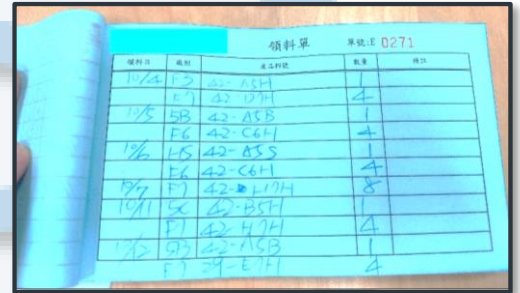 領料單 單號:E 0271
領料日 組別 產品料號 數量 備註
10/4 F7 42-A5H 1
F7 42-D7H 4
10/5 5B 42-A5B 1
F6 42-C6H 4
10/6 H5 42-A5S 1
F6 42-C6H 4
10/7 F7 42-H7H 8
10/11 5C 42-B5H 1
F7 42-H7H 4
10/12 5B 42-A5B 1
F7 29-E7H 4